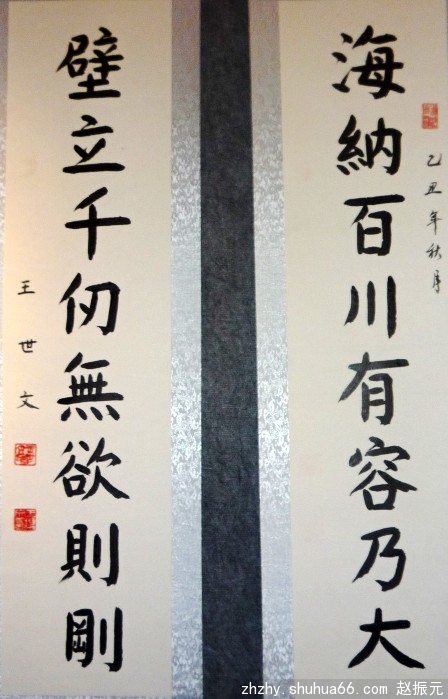 海納百川有容乃大
乙丑年秋月
壁立千仞無欲則剛
王世文
zhzhy.shuhua66.com 赵振元